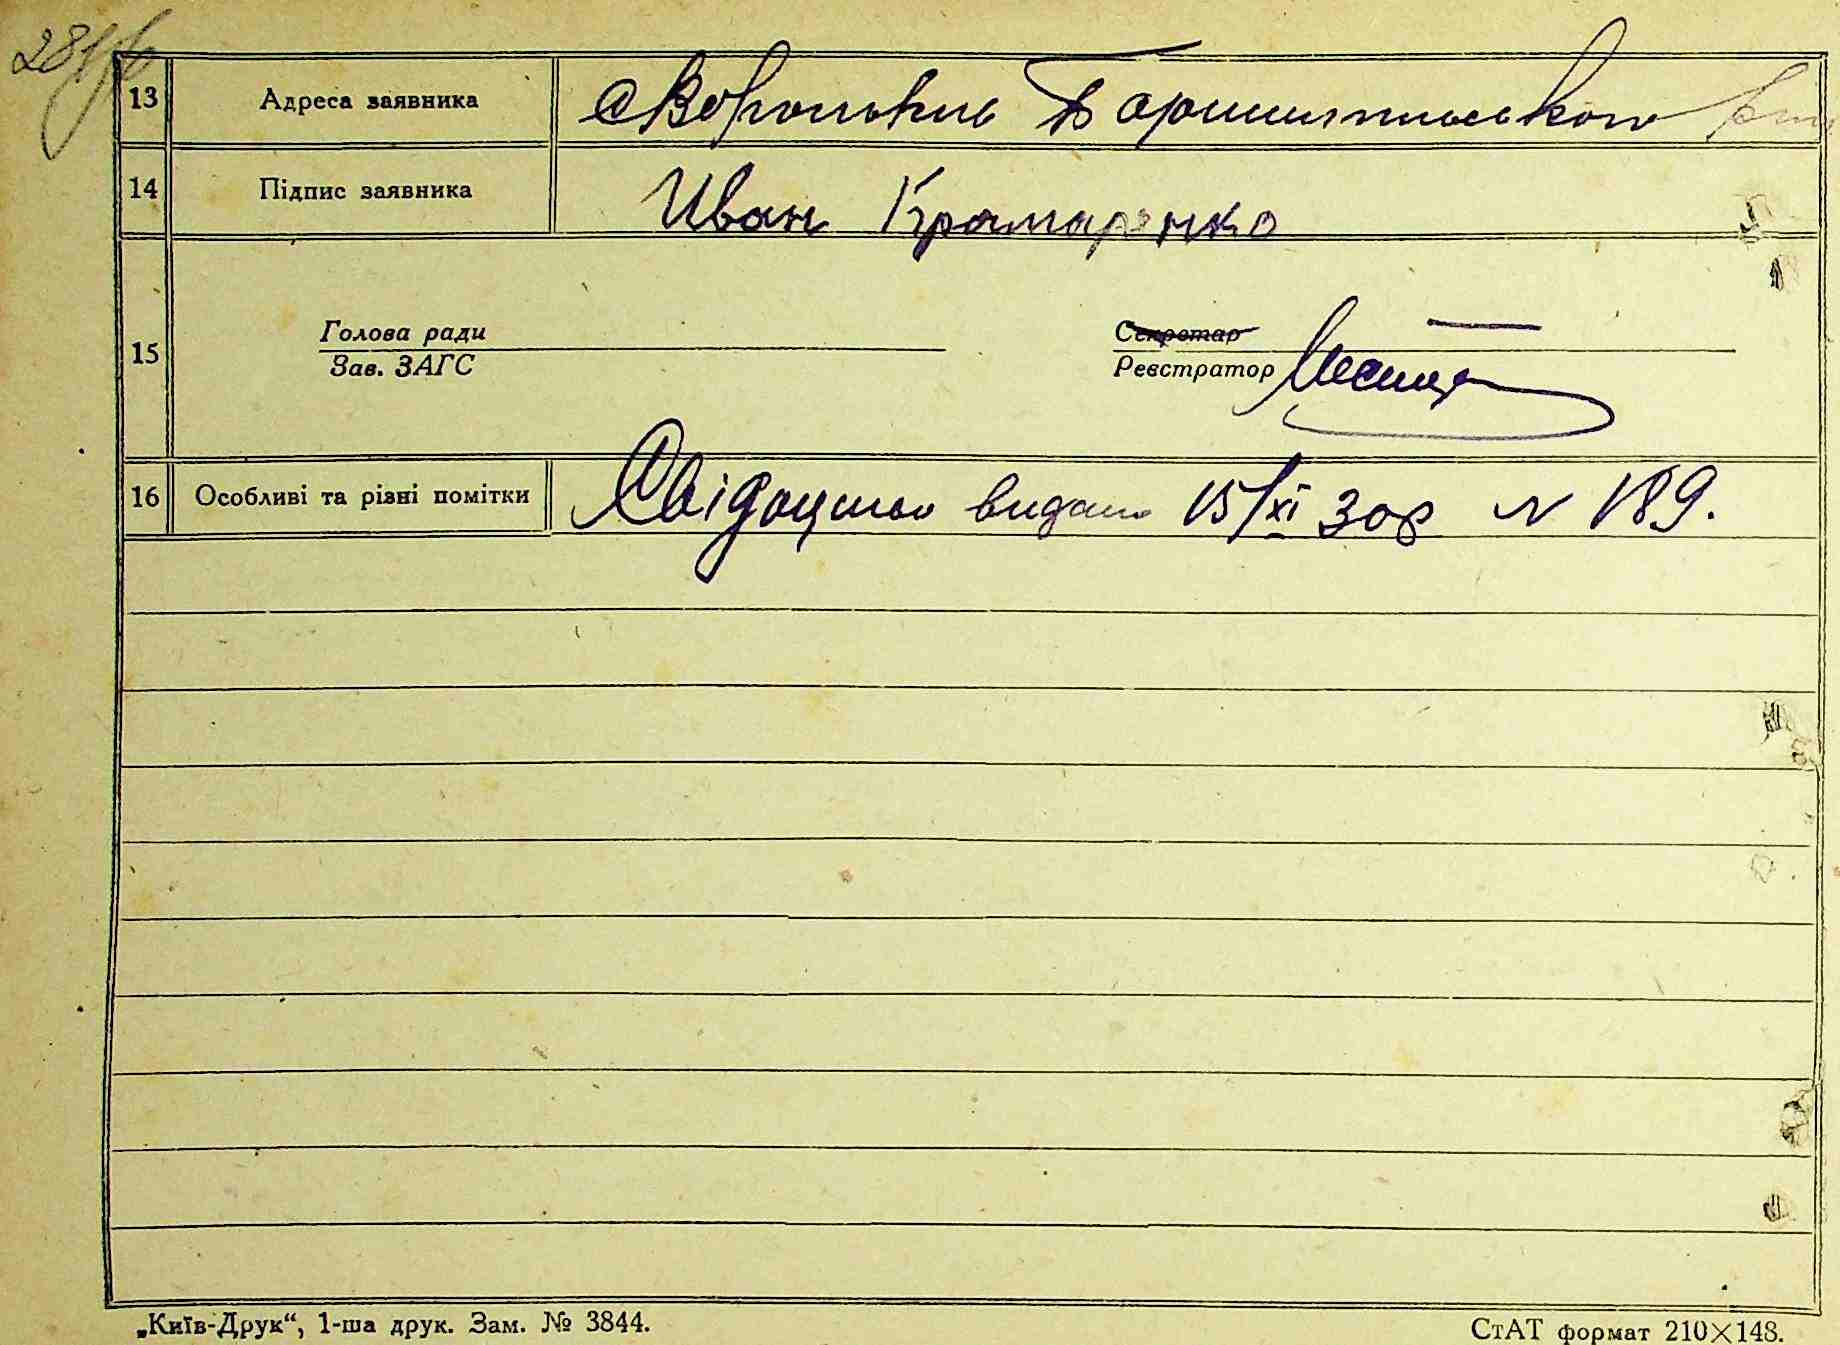 13 Адреса заявника с Вороньків Бориспільського р-ну
14 Підпис заявника Иван Крамаренко
Голова ради Секретар
15
Зав. ЗАГС Реєстратор
16 Особливі та різні помітки Свідоцтво видано 15/XI 30р N 189.
„Київ-Друк“, 1-ша друк. Зам. № 3844. СтАТ формат 210×148.